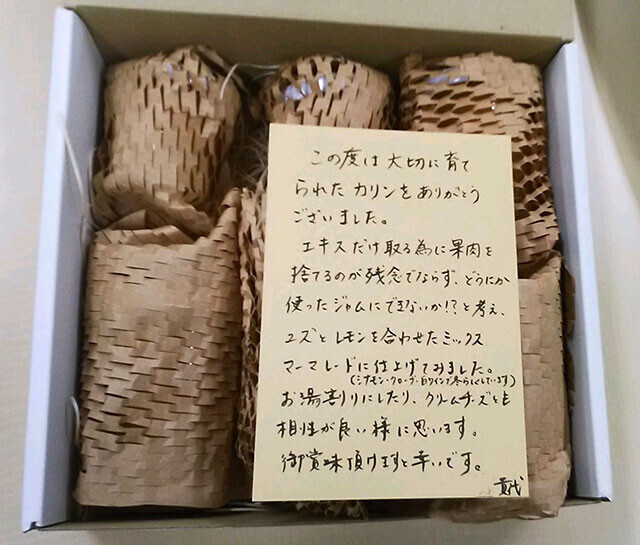 この度は大切に育て
られたカリンをありがとう
ございました。
エキスだけ取る為に果肉を
捨てるのが残念でならず、どうにか
使ったジャムにできないか!?と考え、
ユズとレモンを合わせたミックス
マーマレードに仕上げてみました。
(シナモン・クローブ・白ワインで冬らしくしています)
お湯割りにしたり、クリームチーズとも
相性が良い様に思います。
御賞味頂けますと幸いです。
貴代